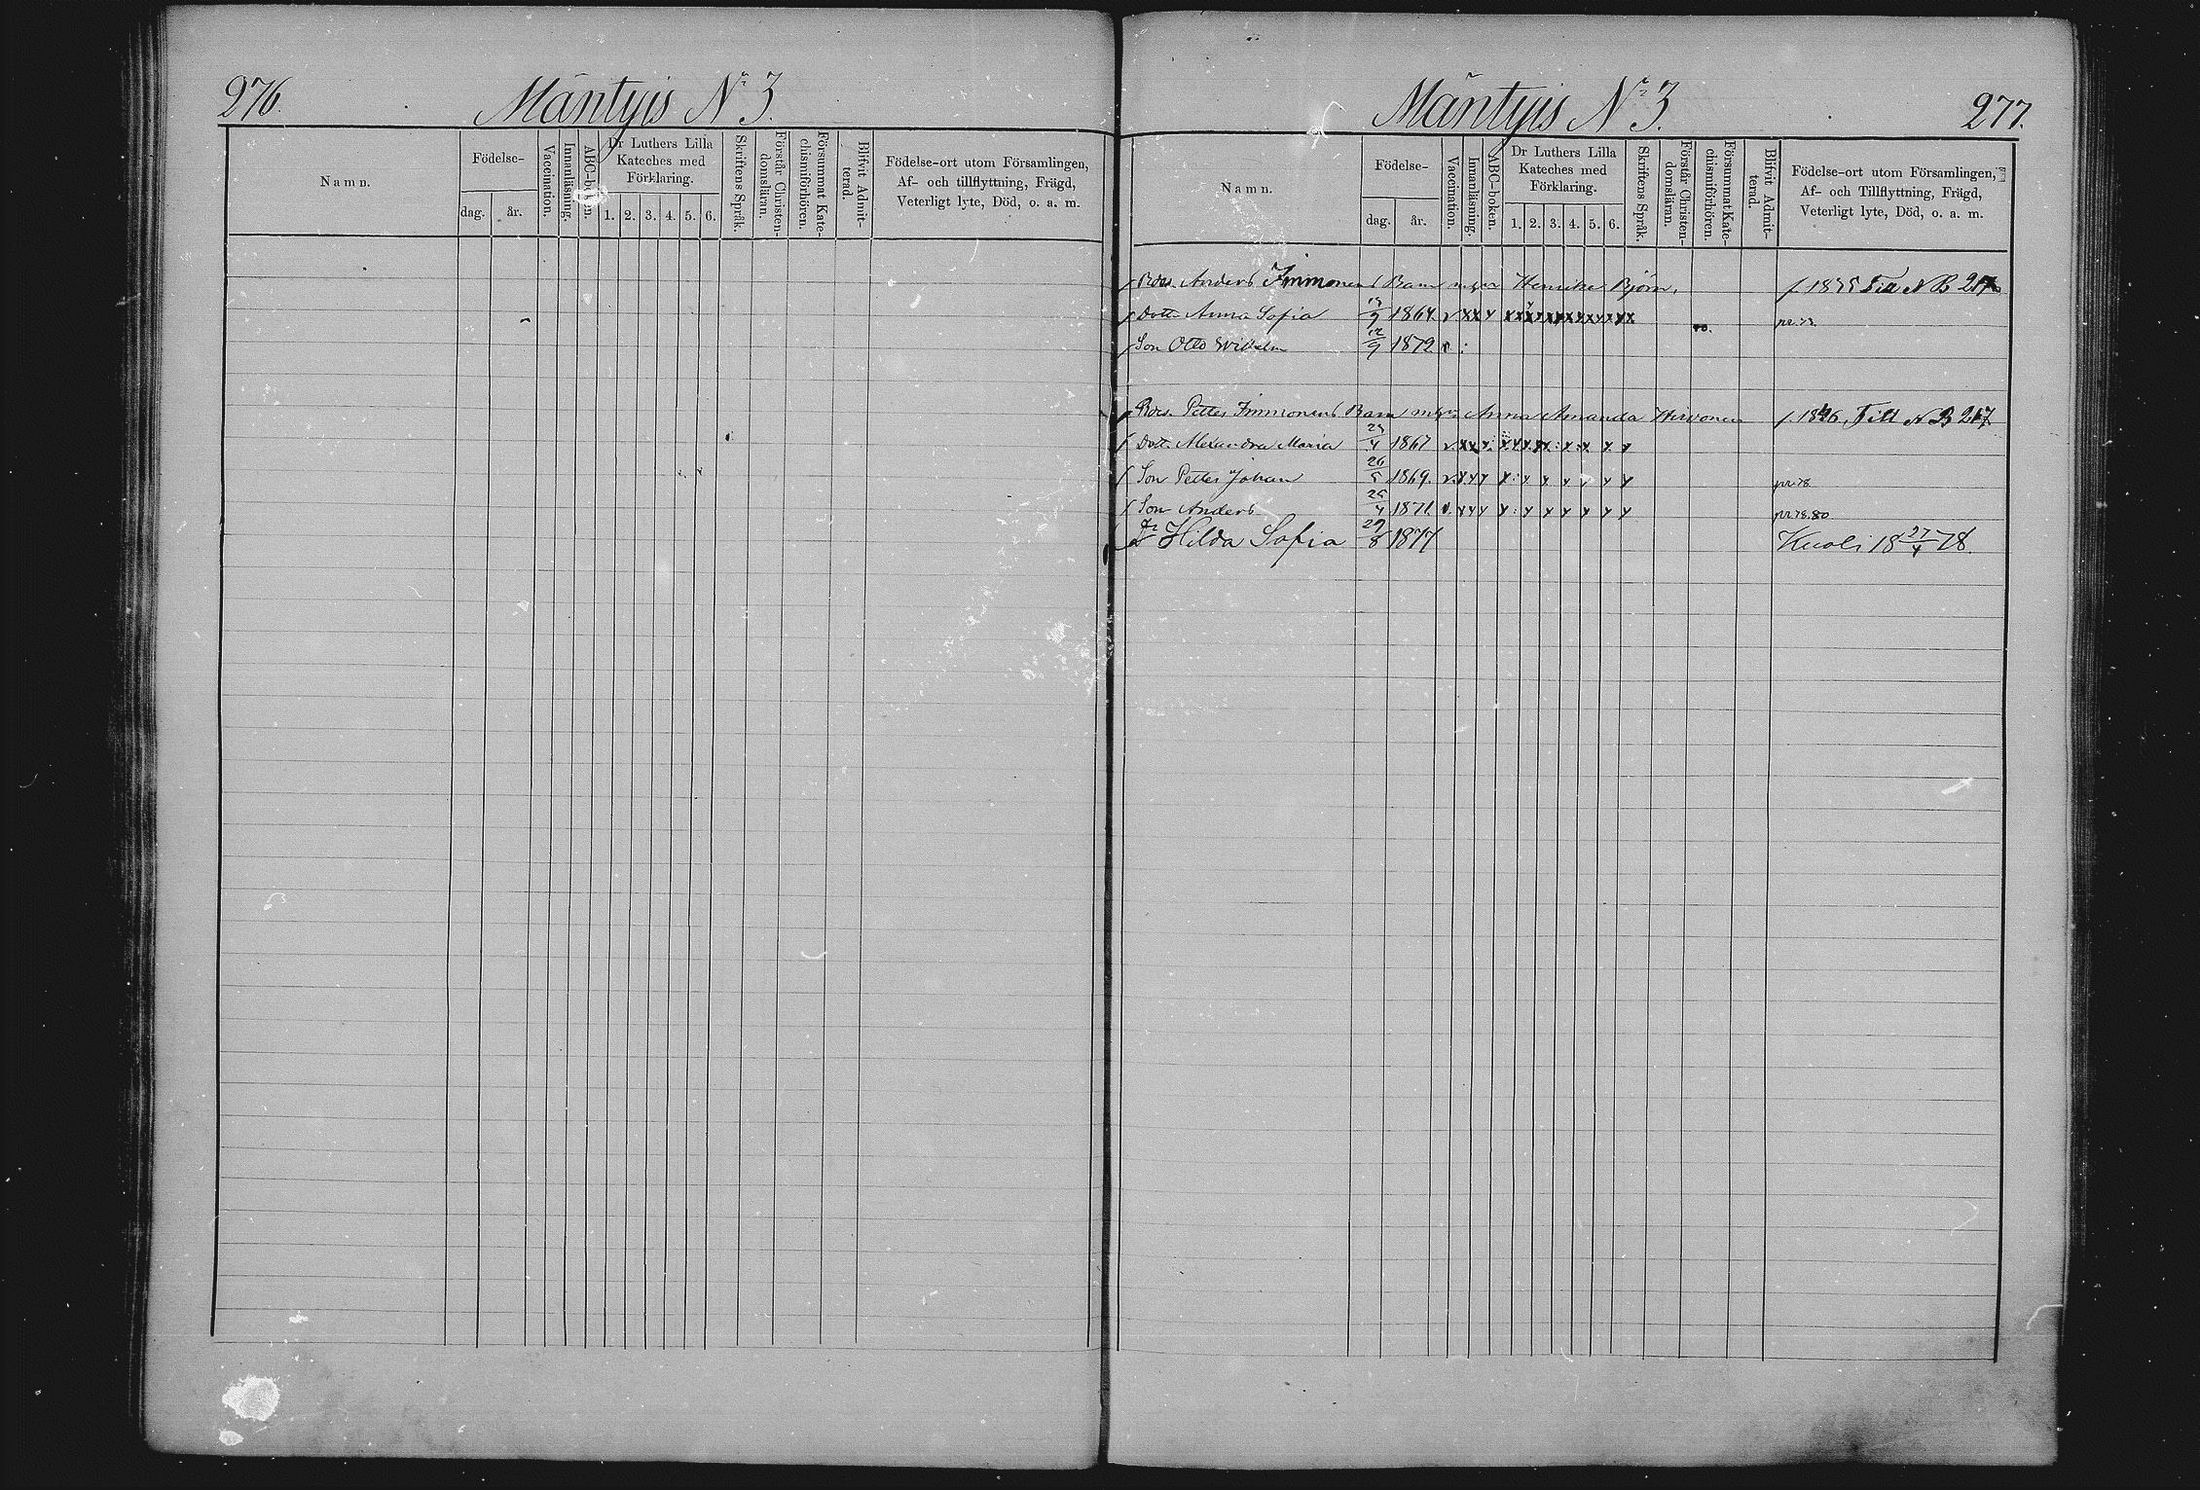 276.
Mäntyis No 3.
Namn.
Födelse-
dag.
år.
Vaccination.
Innanläsning.
ABC-boken.
Dr Luthers Lilla
Kateches med
Förklaring.
1. 2. 3. 4. 5. 6.
Skriftens Språk.
Förstår Christen-
domsläran.
Försummat Kate-
chismiförhören.
Blifvit Admit-
terad.
Födelse-ort utom Församlingen,
Af- och tillflyttning, Frägd,
Veterligt lyte, Död, o. a. m.
Mäntyis No 3.
277.
Namn.
Födelse-
dag.
år.
Vaccination.
Innanläsning.
ABC-boken.
Dr Luthers Lilla
Kateches med
Förklaring.
1. 2. 3. 4. 5. 6.
Skriftens Språk.
Förstår Christen-
domsläran.
Försummat Kate-
chismiförhören.
Blifvit Admit-
terad.
Födelse-ort utom Församlingen,
Af- och Tillflyttning, Frägd,
Veterligt lyte, Död, o. a. m.
Anders Immonens Barn Henrika Björn, Till N B 217
Dott. Anna Sofia 1864
Son Otto Wilhelm 12/9 1872
Petter Immonens Barn Anna Amanda Hirvonen Till N B 217
Dott. Alexandra Maria 1867
Son Petter Johan 26/5 1869. pr. 78
Son Anders 1871 pr. 78. 80
Hilda Sofia 29/8 1877 Kuoli 18 27/4 78.